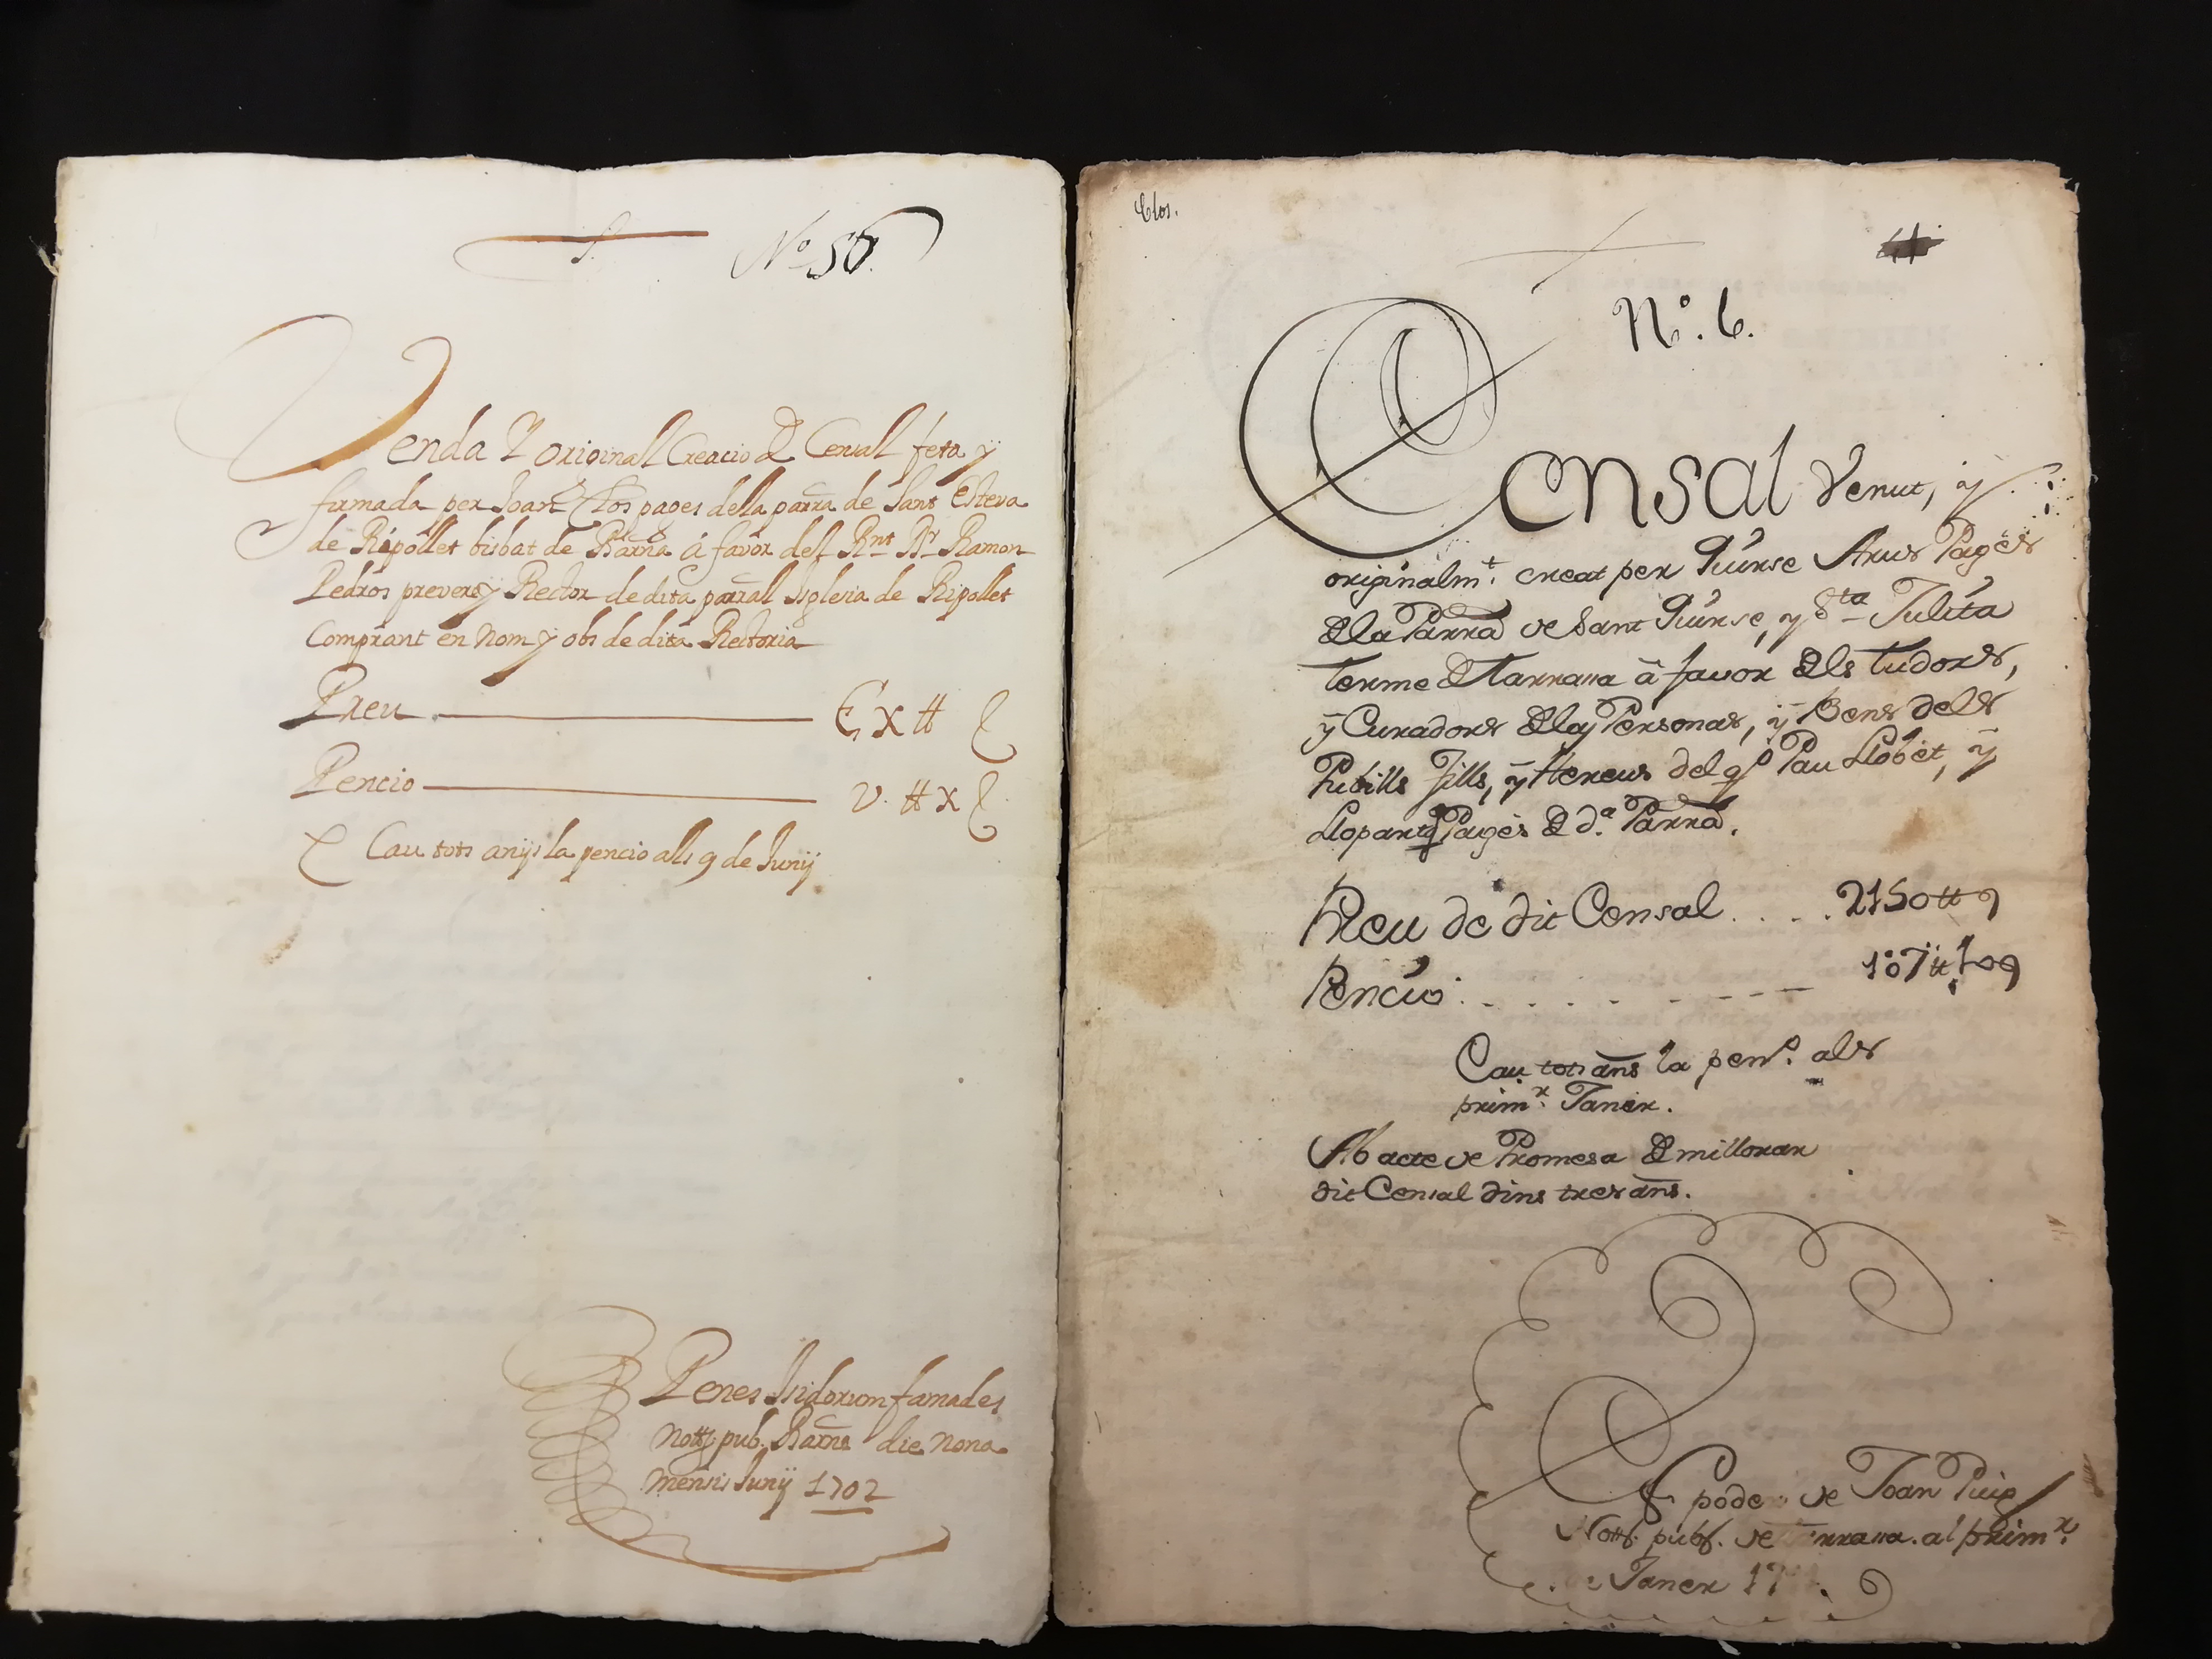 Nº 56.
Venda y originall Creacio de Censal feta y
firmada per Joan Clos pages de la parra de Sant Esteva
de Ripollet bisbat de Barna á favor del Rnt Dr Ramon
Pedros prevere y Rector de dita parrall Iglesia de Ripollet
Comprant en nom y obs de dita Rectoria
Preu C X ₶
Pencio v. ₶ X
Cau tots anys la pencio alls 9 de Juny
Penes Isidorum famades
nott pub. Barne die nona
mensis Junij 1702
Clos.
Nº. 6.
Censal Venut, ÿ
originalmt. creat per Quirse Arus Pagès
de la Parra de Sant Quirse, y Sta Julita
terme de Tarrassa à favor dels tudors,
ÿ Curadors de las Personas, ÿ Bens dels
Pubills fills, ÿ Hereus del qº Pau Llobet, ÿ
Llopart Pagès de da. Parra.
Preu de dit Censal . . . . 2150 ₶ 9
Pencio: . . . . . . . . . 107 ₶ 10 9
Cau tots ans la penº. als
primr. Janer.
Ab acte de Promesa de millorar
dit Censal dins tres ans.
En poder de Joan Puig
Nott. pub. de Tarrassa. al primr.
Janer 17